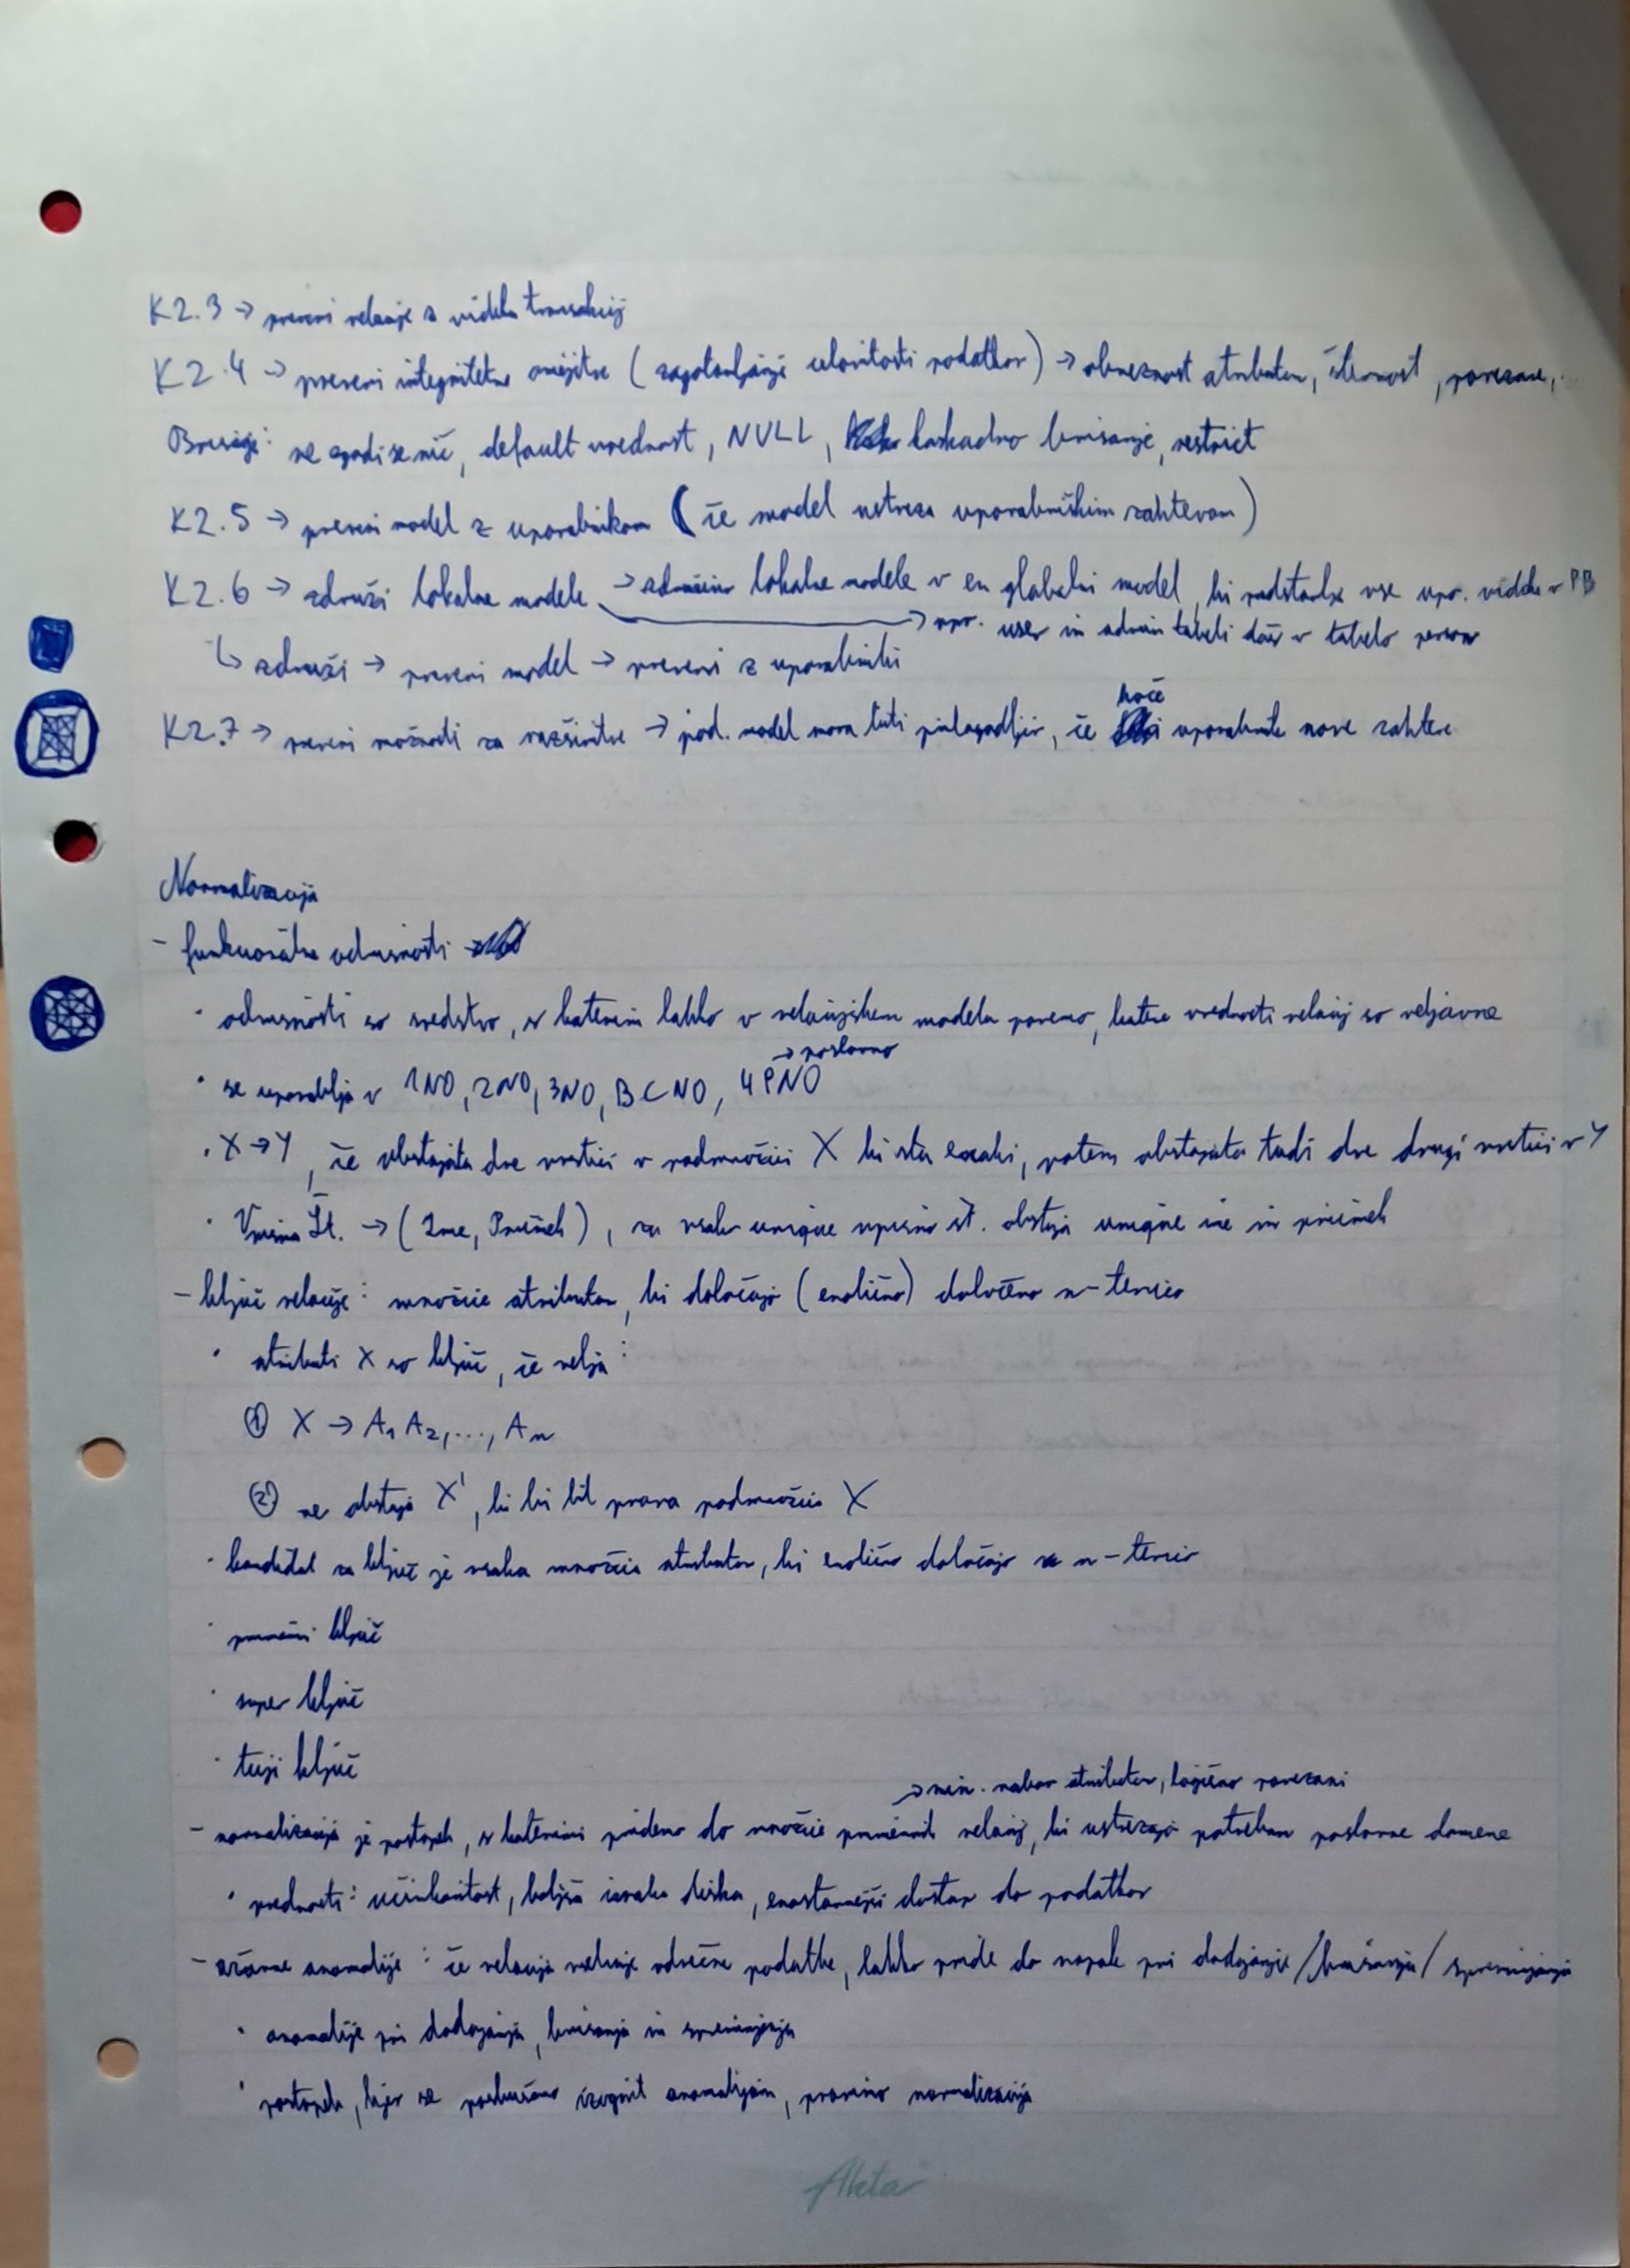 K2.3 → preveri relacije z vidika transakcij
K2.4 → preveri integritetne omejitve (zagotavljanje celovitosti podatkov) → obveznost atributov, števnost, povezave,..
Brisanje: ne zgodi se nič, default vrednost, NULL, kaskadno brisanje, restrict
K2.5 → preveri model z uporabnikom (če model ustreza uporabniškim zahtevam)
K2.6 → združi lokalne modele → združimo lokalne modele v en globalni model, ki predstavlja vse upo. vidike v PB
→ npr. user in admin tabeli daš v tabelo person
↳ združi → preveri model → preveri z uporabniki
hoče
K2.7 → preveri možnosti za razširitve → pod. model mora biti prilagodljiv, če uporabnik nove zahteve
Normalizacija
- funkcionalne odvisnosti
· odvisnosti so sredstvo, s katerim lahko v relacijskem modelu povemo, katere vrednosti relacij so veljavne
→ poslovno
· se uporablja v 1NO, 2NO, 3NO, BCNO, 4PNO
· X → Y, če obstajata dve vrstici v podmnožici X ki sta enaki, potem obstajata tudi dve drugi vrstici v Y
· Vpisna Št. → (Ime, Priimek), za vsako unique vpisno št. obstaja unique ime in priimek
- ključ relacije: množice atributov, ki določajo (enolično) določeno n-terico
· atributi X so ključ, če velja:
① X → A₁ A₂,..., Aₙ
② ne obstaja X', ki bi bil prava podmnožica X
· kandidat za ključ je vsaka množica atributov, ki enolično določajo n-terico
· primarni ključ
· super ključ
· tuji ključ
→ min. nabor atributov, logično povezani
- normalizacija je postopek, s katerimi pridemo do množice primernih relacij, ki ustrezajo potrebam poslovne domene
· prednosti: učinkovitost, boljša izraba diska, enostavnejši dostop do podatkov
- ažurne anomalije: če relacija vsebuje odvečne podatke, lahko pride do napak pri dodajanju / brisanju / spreminjanju
· anomalije pri dodajanju, brisanju in spreminjanju
· postopek, kjer se poskušamo izognit anomalijam, pravimo normalizacija
Akta